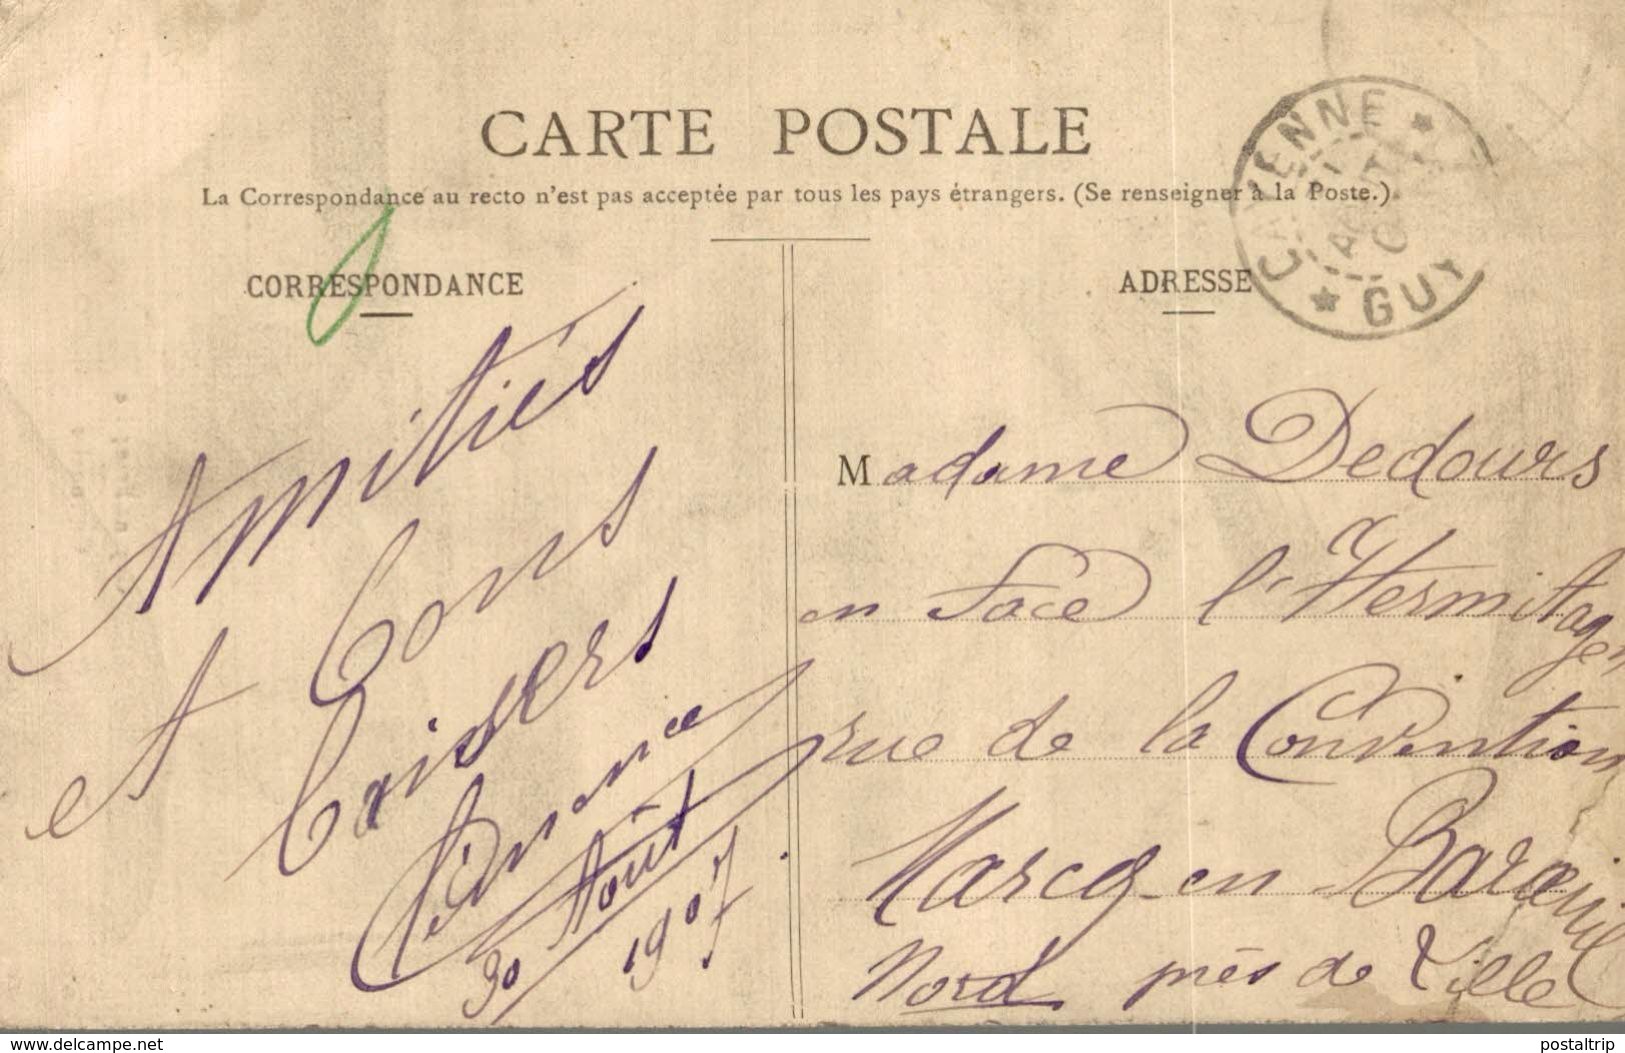 CARTE POSTALE
La Correspondance au recto n'est pas acceptée par tous les pays étrangers. (Se renseigner à la Poste.)
CORRESPONDANCE
Amitiés
et bons
baisers
30 Août
1907
ADRESSE
CAYENNE * GUY *
Madame Dedours
en face l'Hermitage
rue de la Convention
Marcq-en Baroeuil
Nord près de Lille
www.delcampe.net
postaltrip